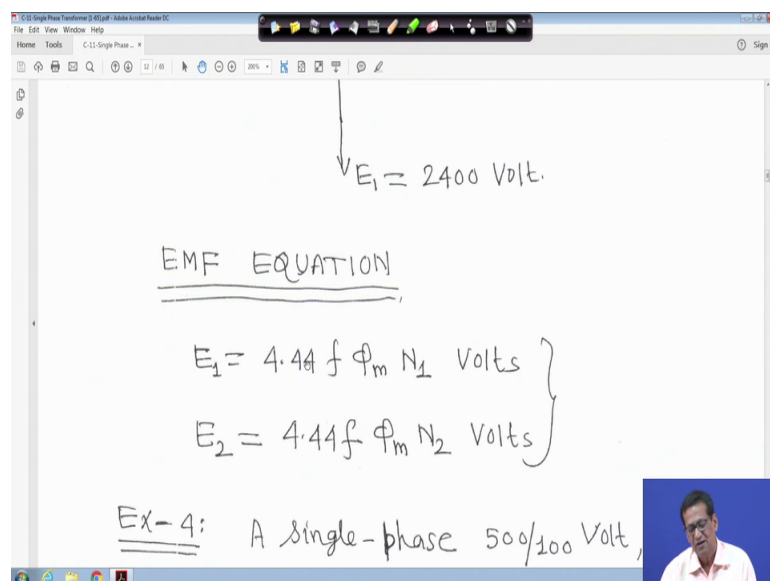 C-11-Single Phase Transformer [1-65].pdf - Adobe Acrobat Reader DC
File Edit View Window Help
Home Tools C-11-Single Phase ... × Sign
12 / 65 200%
E₁ = 2400 Volt.
EMF EQUATION
E₁ = 4.44 f Φₘ N₁ Volts
E₂ = 4.44 f Φₘ N₂ Volts
Ex-4: A single-phase 500/100 Volt,